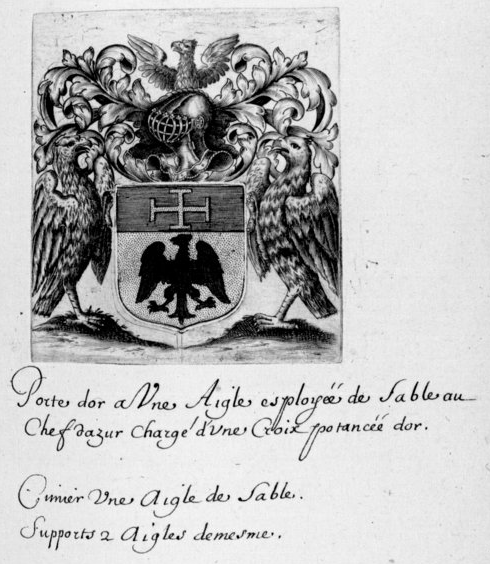 Porte dor a Vne Aigle esployéé de Sable au
Chef dazur Chargé d'Vne Croix potancéé dor.
Cimier Vne Aigle de Sable.
Supports 2 Aigles demesme.